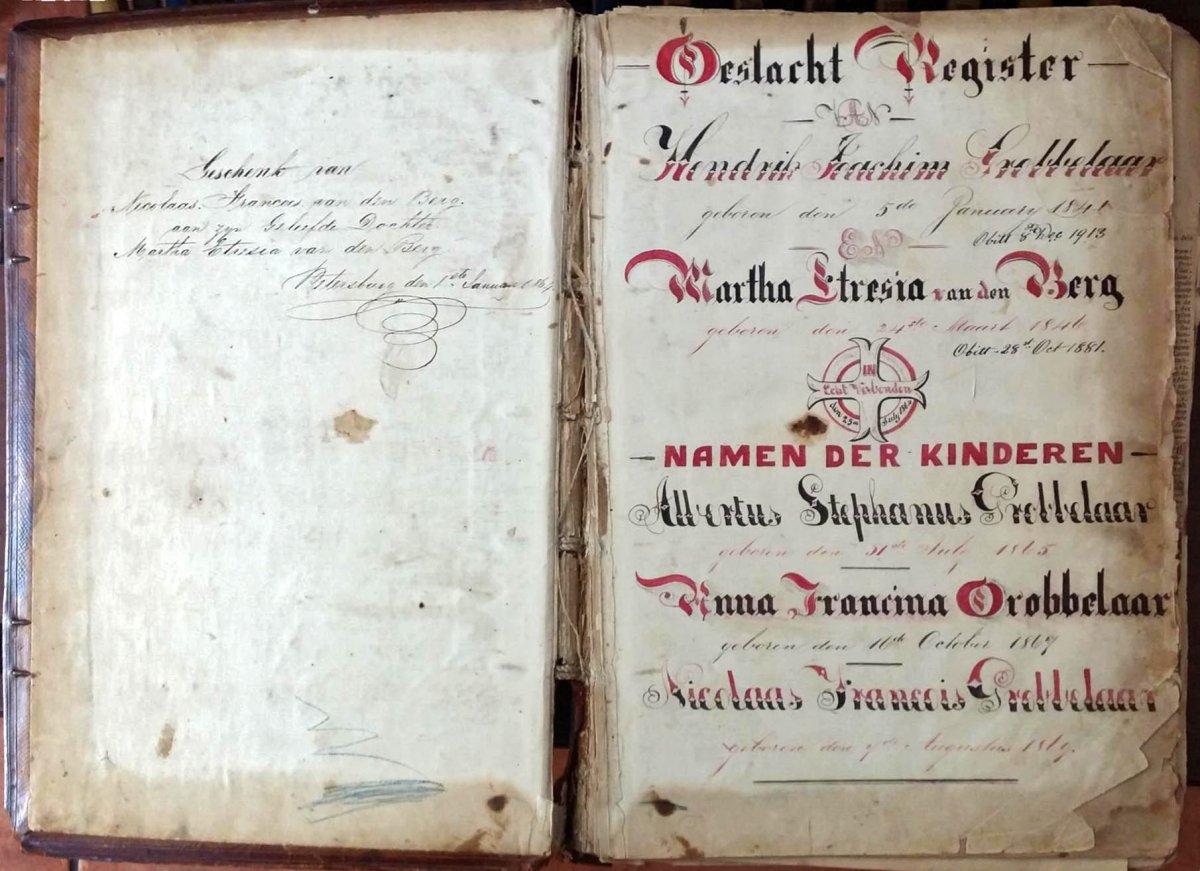 Geschenk van
Nicolaas. Francois van den Berg.
aan zyn Geliefde Dochter
Martha Etresia van den Berg
Petersburg den 1ste Januari
Geslacht Register
VAN
Hendrik Joachim Grobbelaar
geboren den 5de January 1841
Obiit 8ste Dec 1913
EN
Martha Etresia van den Berg
geboren den 24ste Maart 1846
Obiit 28st Oct 1881.
IN
Echt Verbonden
den 25ste July
NAMEN DER KINDEREN
Albertus Stephanus Grobbelaar
geboren den 31ste July 1865
Anna Francina Grobbelaar
geboren den 16de October 1867
Nicolaas Francois Grobbelaar
geboren den Augustus 1869.